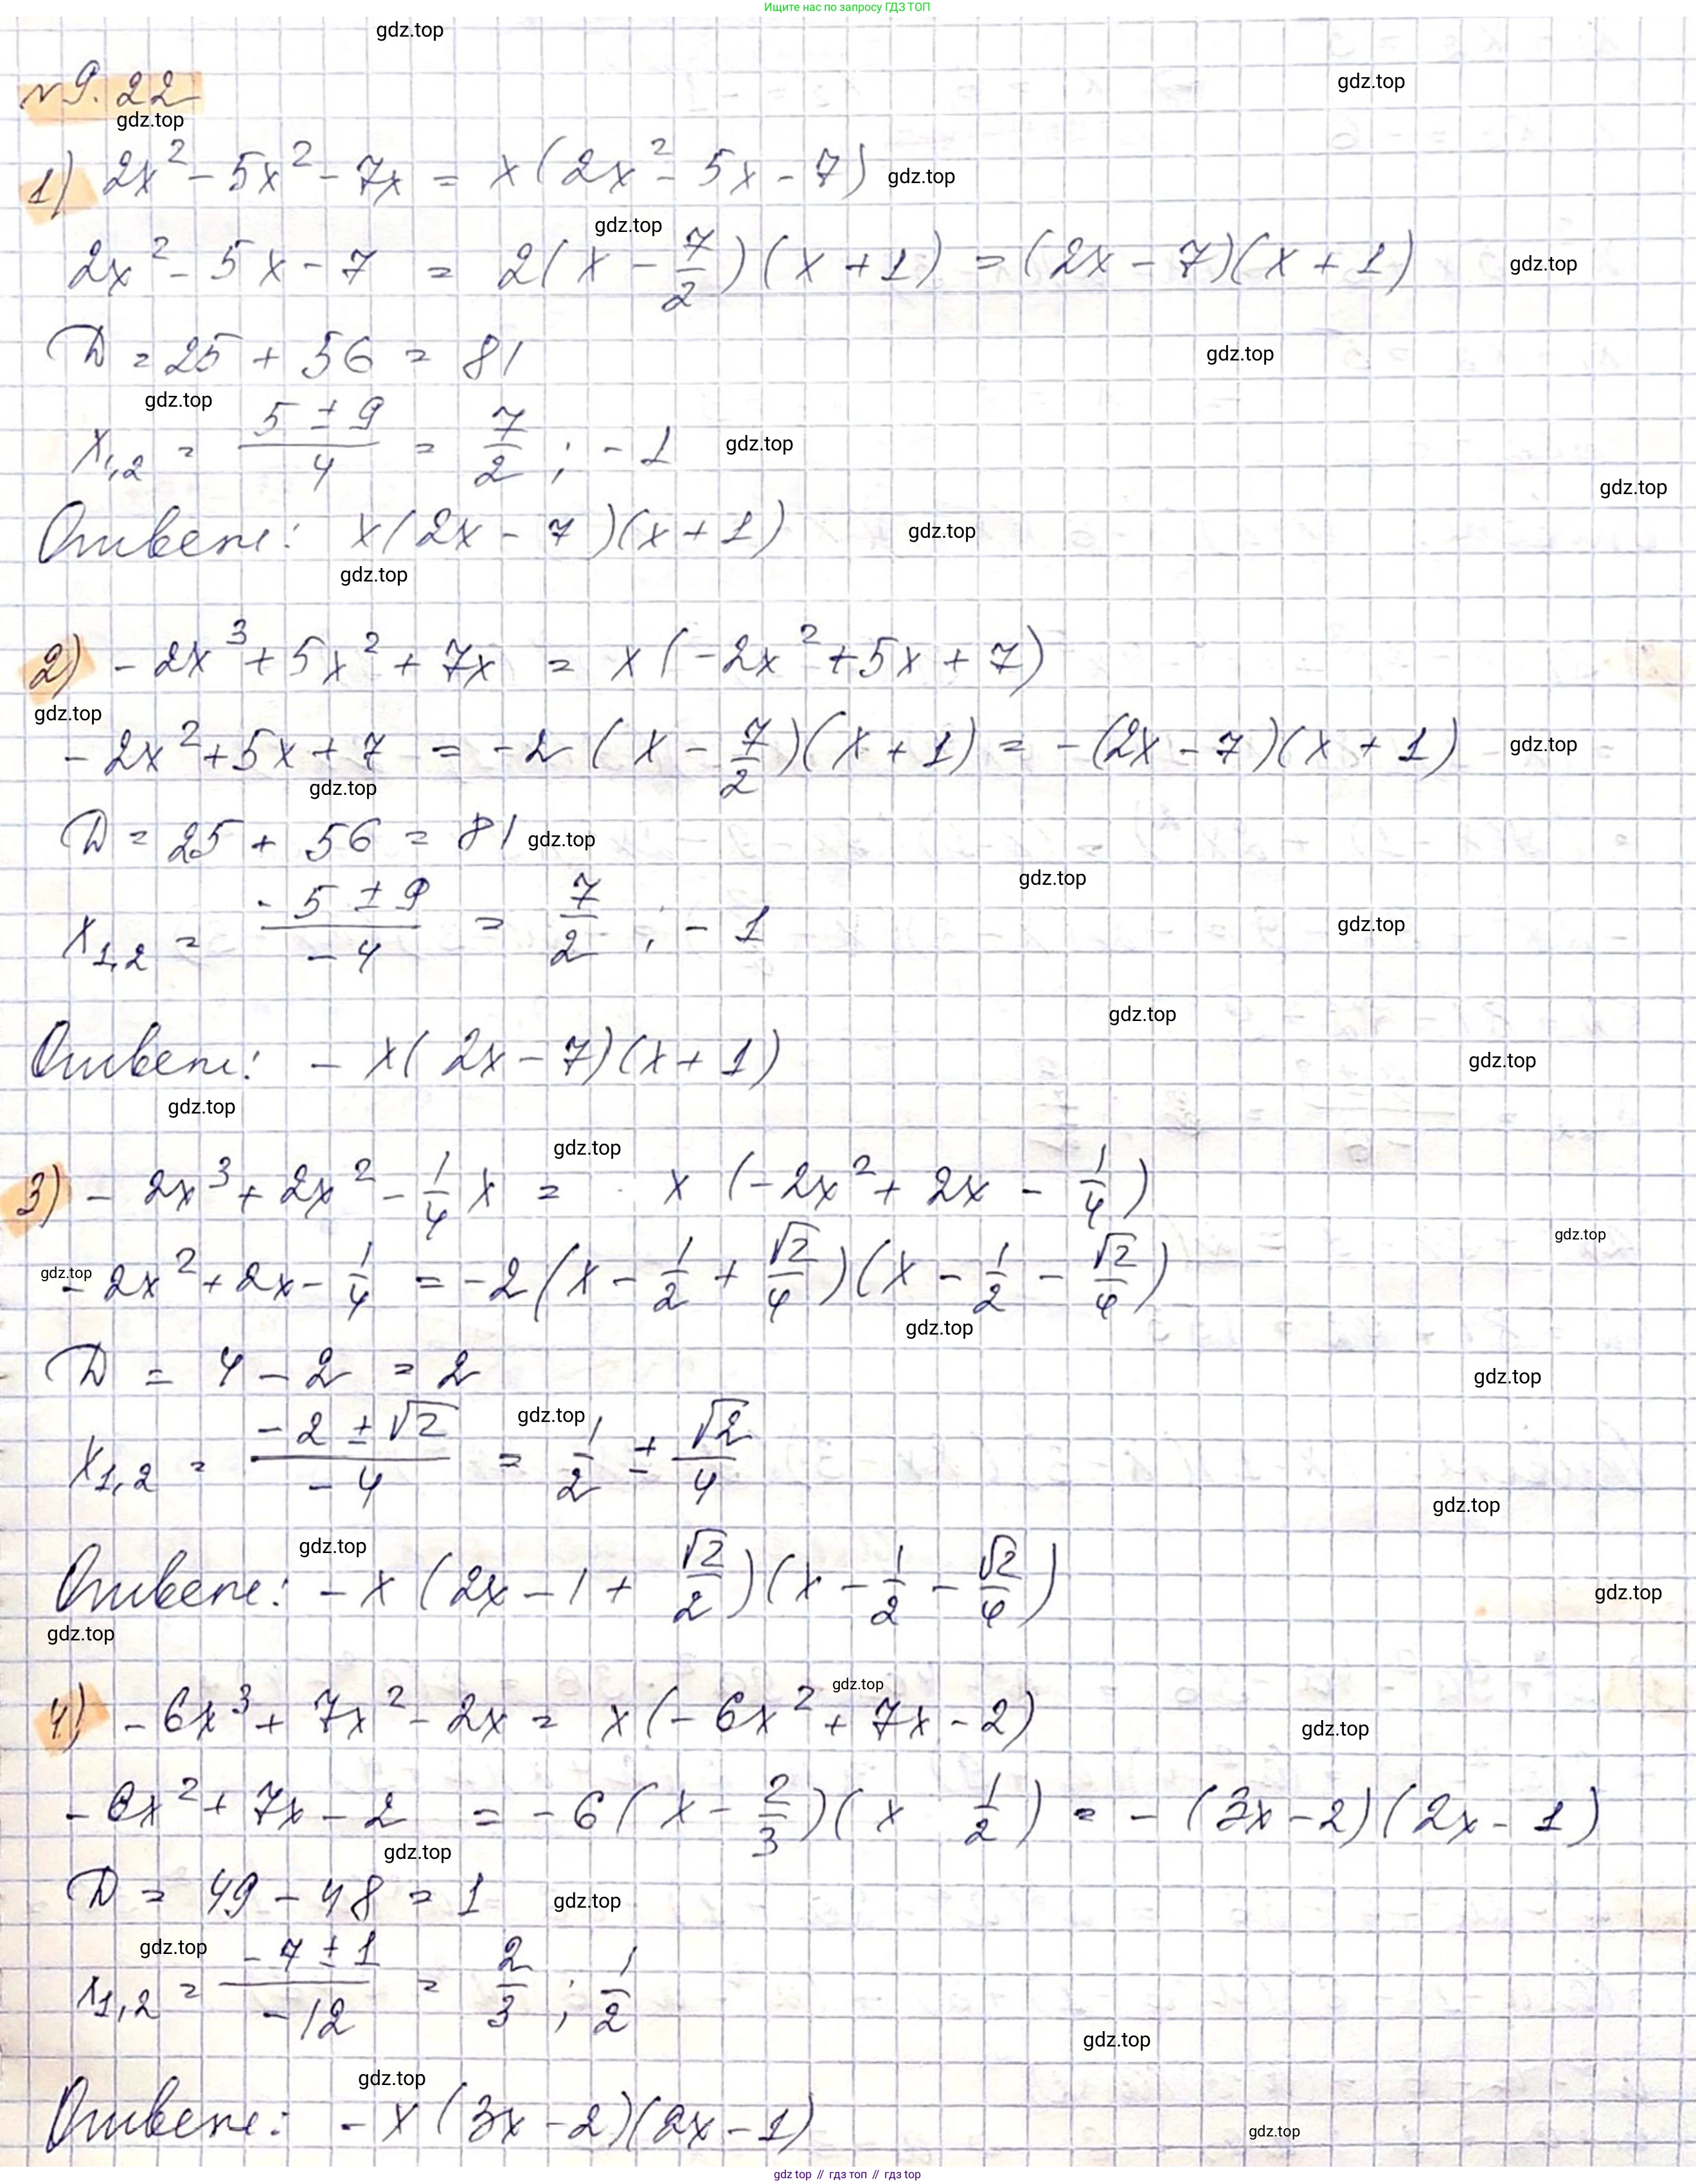 Ищите нас по запросу ГДЗ ТОП
gdz.top
№ 9.22
gdz.top
gdz.top
1) 2x² - 5x² - 7x = x(2x² - 5x - 7) gdz.top
gdz.top
2x² - 5x - 7 = 2(x - 7/2)(x + 1) = (2x - 7)(x + 1) gdz.top
D = 25 + 56 = 81 gdz.top
gdz.top
x₁,₂ = (5 ± 9)/4 = 7/2 ; -1 gdz.top
gdz.top
Ответ: x(2x - 7)(x + 1) gdz.top
gdz.top
2) -2x³ + 5x² + 7x = x(-2x² + 5x + 7)
gdz.top
-2x² + 5x + 7 = -2(x - 7/2)(x + 1) = -(2x - 7)(x + 1) gdz.top
gdz.top
D = 25 + 56 = 81 gdz.top
gdz.top
x₁,₂ = (-5 ± 9)/-4 = 7/2 ; -1 gdz.top
gdz.top
Ответ: -x(2x - 7)(x + 1) gdz.top
gdz.top
gdz.top
3) -2x³ + 2x² - 1/4 x = x(-2x² + 2x - 1/4)
gdz.top
gdz.top -2x² + 2x - 1/4 = -2(x - 1/2 + √2/4)(x - 1/2 - √2/4)
gdz.top
D = 4 - 2 = 2 gdz.top
gdz.top
x₁,₂ = (-2 ± √2)/-4 = 1/2 ± √2/4
gdz.top
gdz.top
Ответ: -x(2x - 1 + √2/2)(x - 1/2 - √2/4) gdz.top
gdz.top
gdz.top
4) -6x³ + 7x² - 2x = x(-6x² + 7x - 2) gdz.top
-6x² + 7x - 2 = -6(x - 2/3)(x 1/2) = -(3x - 2)(2x - 1)
gdz.top
D = 49 - 48 = 1 gdz.top
gdz.top
x₁,₂ = (-7 ± 1)/-12 = 2/3 ; 1/2
gdz.top
gdz.top
Ответ: -x(3x - 2)(2x - 1) gdz.top
gdz.top // гдз топ // гдз top